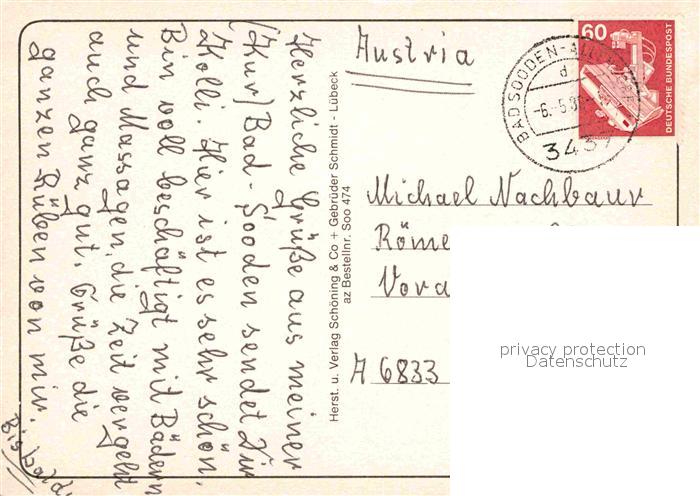 Herzliche Grüße aus meiner
(Kur) Bad-Sooden sendet Dir
Holli. Hier ist es sehr schön.
Bin voll beschäftigt mit Bädern
und Massagen, die Zeit vergeht
auch ganz gut. Grüße die
ganzen Rüben von mir.
Bis
Herst. u. Verlag Schöning & Co + Gebrüder Schmidt - Lübeck
az Bestellnr. Soo 474
Austria
60
DEUTSCHE BUNDESPOST
BAD SOODEN-ALL
d
-6.-5.8
3437
Michael Nachbaur
Röme
Vora
A 6833
privacy protection
Datenschutz